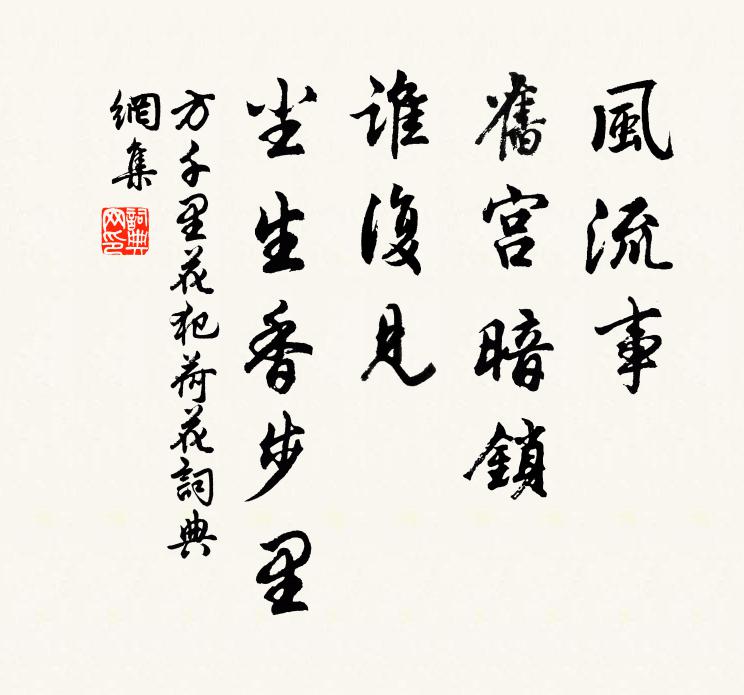 風流事
舊宫暗鎖
誰復見
尘生香步里
方千里花犯荷花詞典
網集
詞典
网印